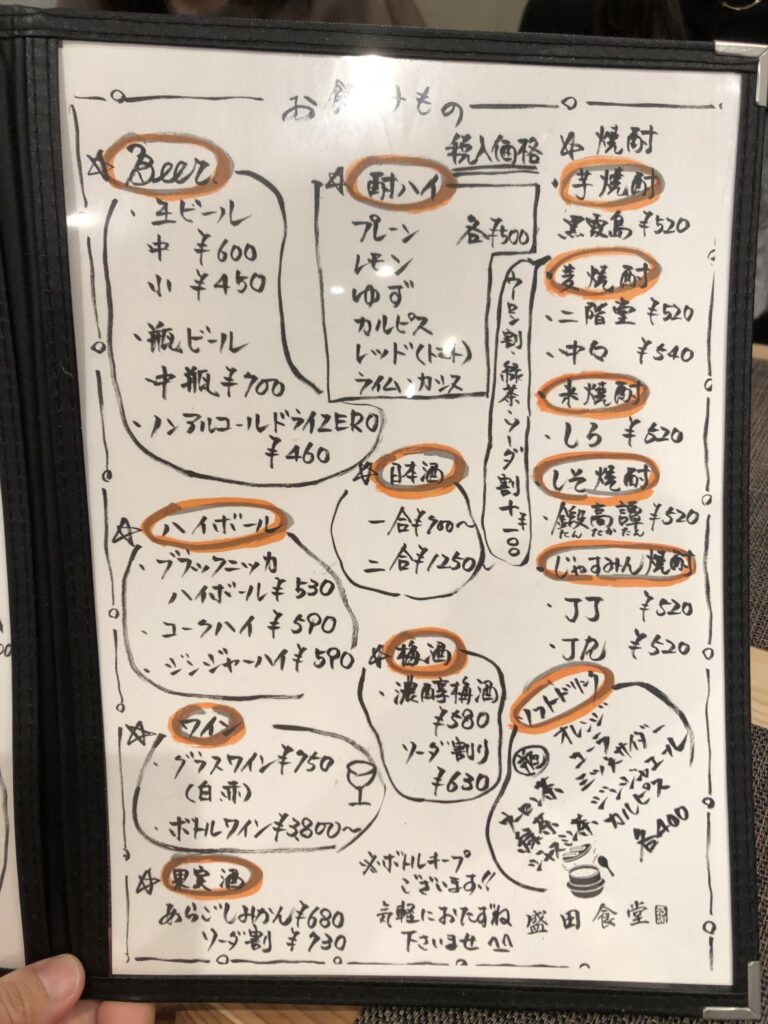 お飲みもの
税入価格
Beer
・生ビール
中 ¥600
小 ¥450
・瓶ビール
中瓶 ¥700
・ノンアルコールドライZERO
¥460
ハイボール
・ブラックニッカ
ハイボール ¥530
・コークハイ ¥590
・ジンジャーハイ ¥590
ワイン
・グラスワイン ¥750
(白.赤)
・ボトルワイン ¥3800〜
果実酒
あらごしみかん ¥680
ソーダ割 ¥730
酎ハイ
プレーン 各¥500
レモン
ゆず
カルピス
レッド(トマト)
ライム・カシス
日本酒
一合 ¥700〜
二合 ¥1250〜
梅酒
・濃醇梅酒
¥580
ソーダ割り
¥630
※ボトルキープ
ございます!!
気軽におたずね
下さいませ ^^
焼酎
・芋焼酎
黒霧島 ¥520
・麦焼酎
・二階堂 ¥520
・中々 ¥540
・米焼酎
・しろ ¥520
しそ焼酎
・鍛高譚 ¥520
たんたかたん
・じゃすみん焼酎
・JJ ¥520
・JR ¥520
ウーロン割・緑茶・ソーダ割 +¥100
ソフトドリンク
オレンジ
コーラ
三ツ矢サイダー
ジンジャエール
カルピス
ウーロン茶
緑茶
ジャスミン茶
各400
盛田食堂